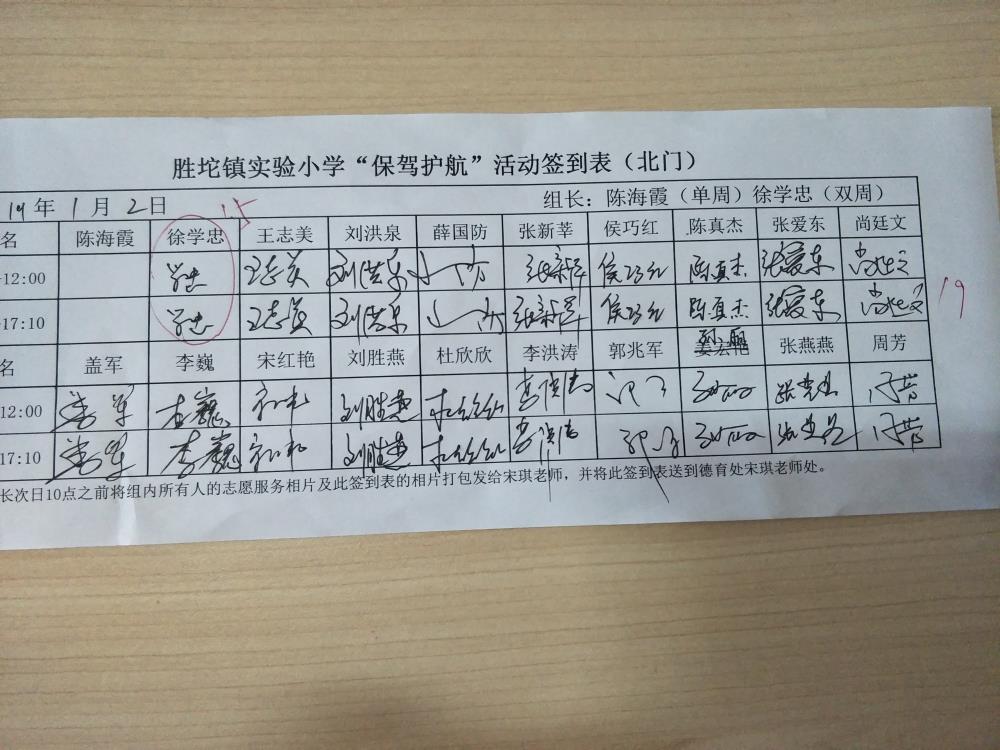 胜坨镇实验小学“保驾护航”活动签到表（北门）
19年1月2日 组长：陈海霞（单周）徐学忠（双周）
15
名 陈海霞 徐学忠 王志美 刘洪泉 薛国防 张新莘 侯巧红 陈真杰 张爱东 尚廷文
12:00 学忠 王志美 刘洪泉 张新莘 侯巧红 陈真杰 张爱东 尚廷文
17:10 学忠 王志美 刘洪泉 张新莘 侯巧红 陈真杰 张爱东 尚廷文
19
名 盖军 李巍 宋红艳 刘胜燕 杜欣欣 李洪涛 郭兆军 张燕燕 周芳
12:00 盖军 李巍 刘胜燕 李洪涛
17:10 盖军 李巍 刘胜燕 李洪涛
长次日10点之前将组内所有人的志愿服务相片及此签到表的相片打包发给宋琪老师，并将此签到表送到德育处宋琪老师处。